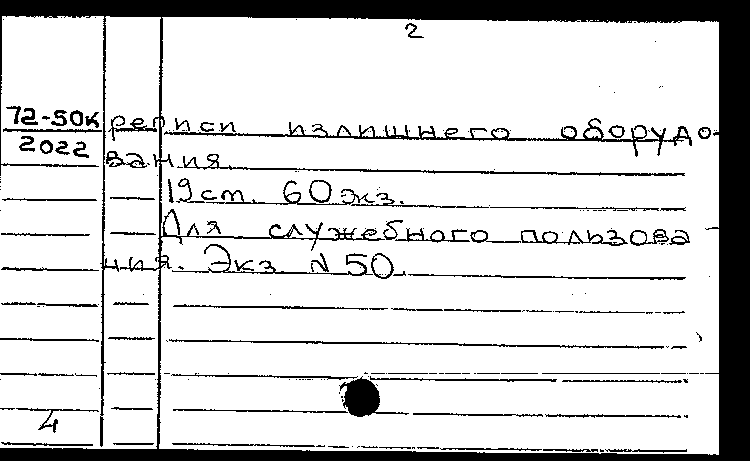 2
72-50к реписи излишнего оборудо-
2022 вания.
19 ст. 60 экз.
Для служебного пользова-
ния. Экз. N 50.
4